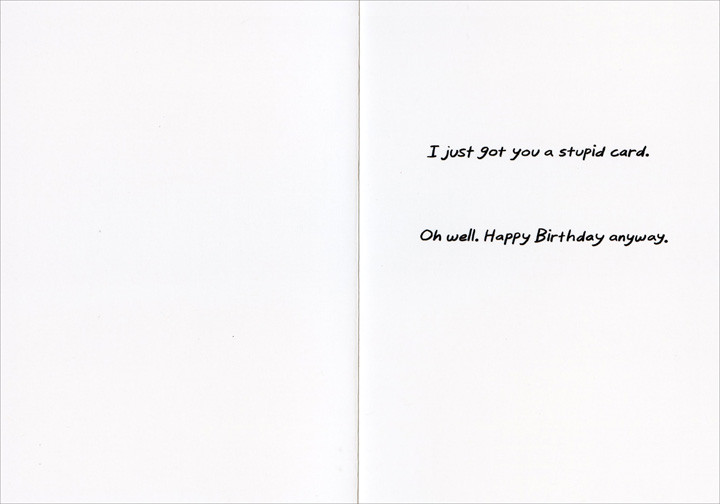 I just got you a stupid card.
Oh well. Happy Birthday anyway.